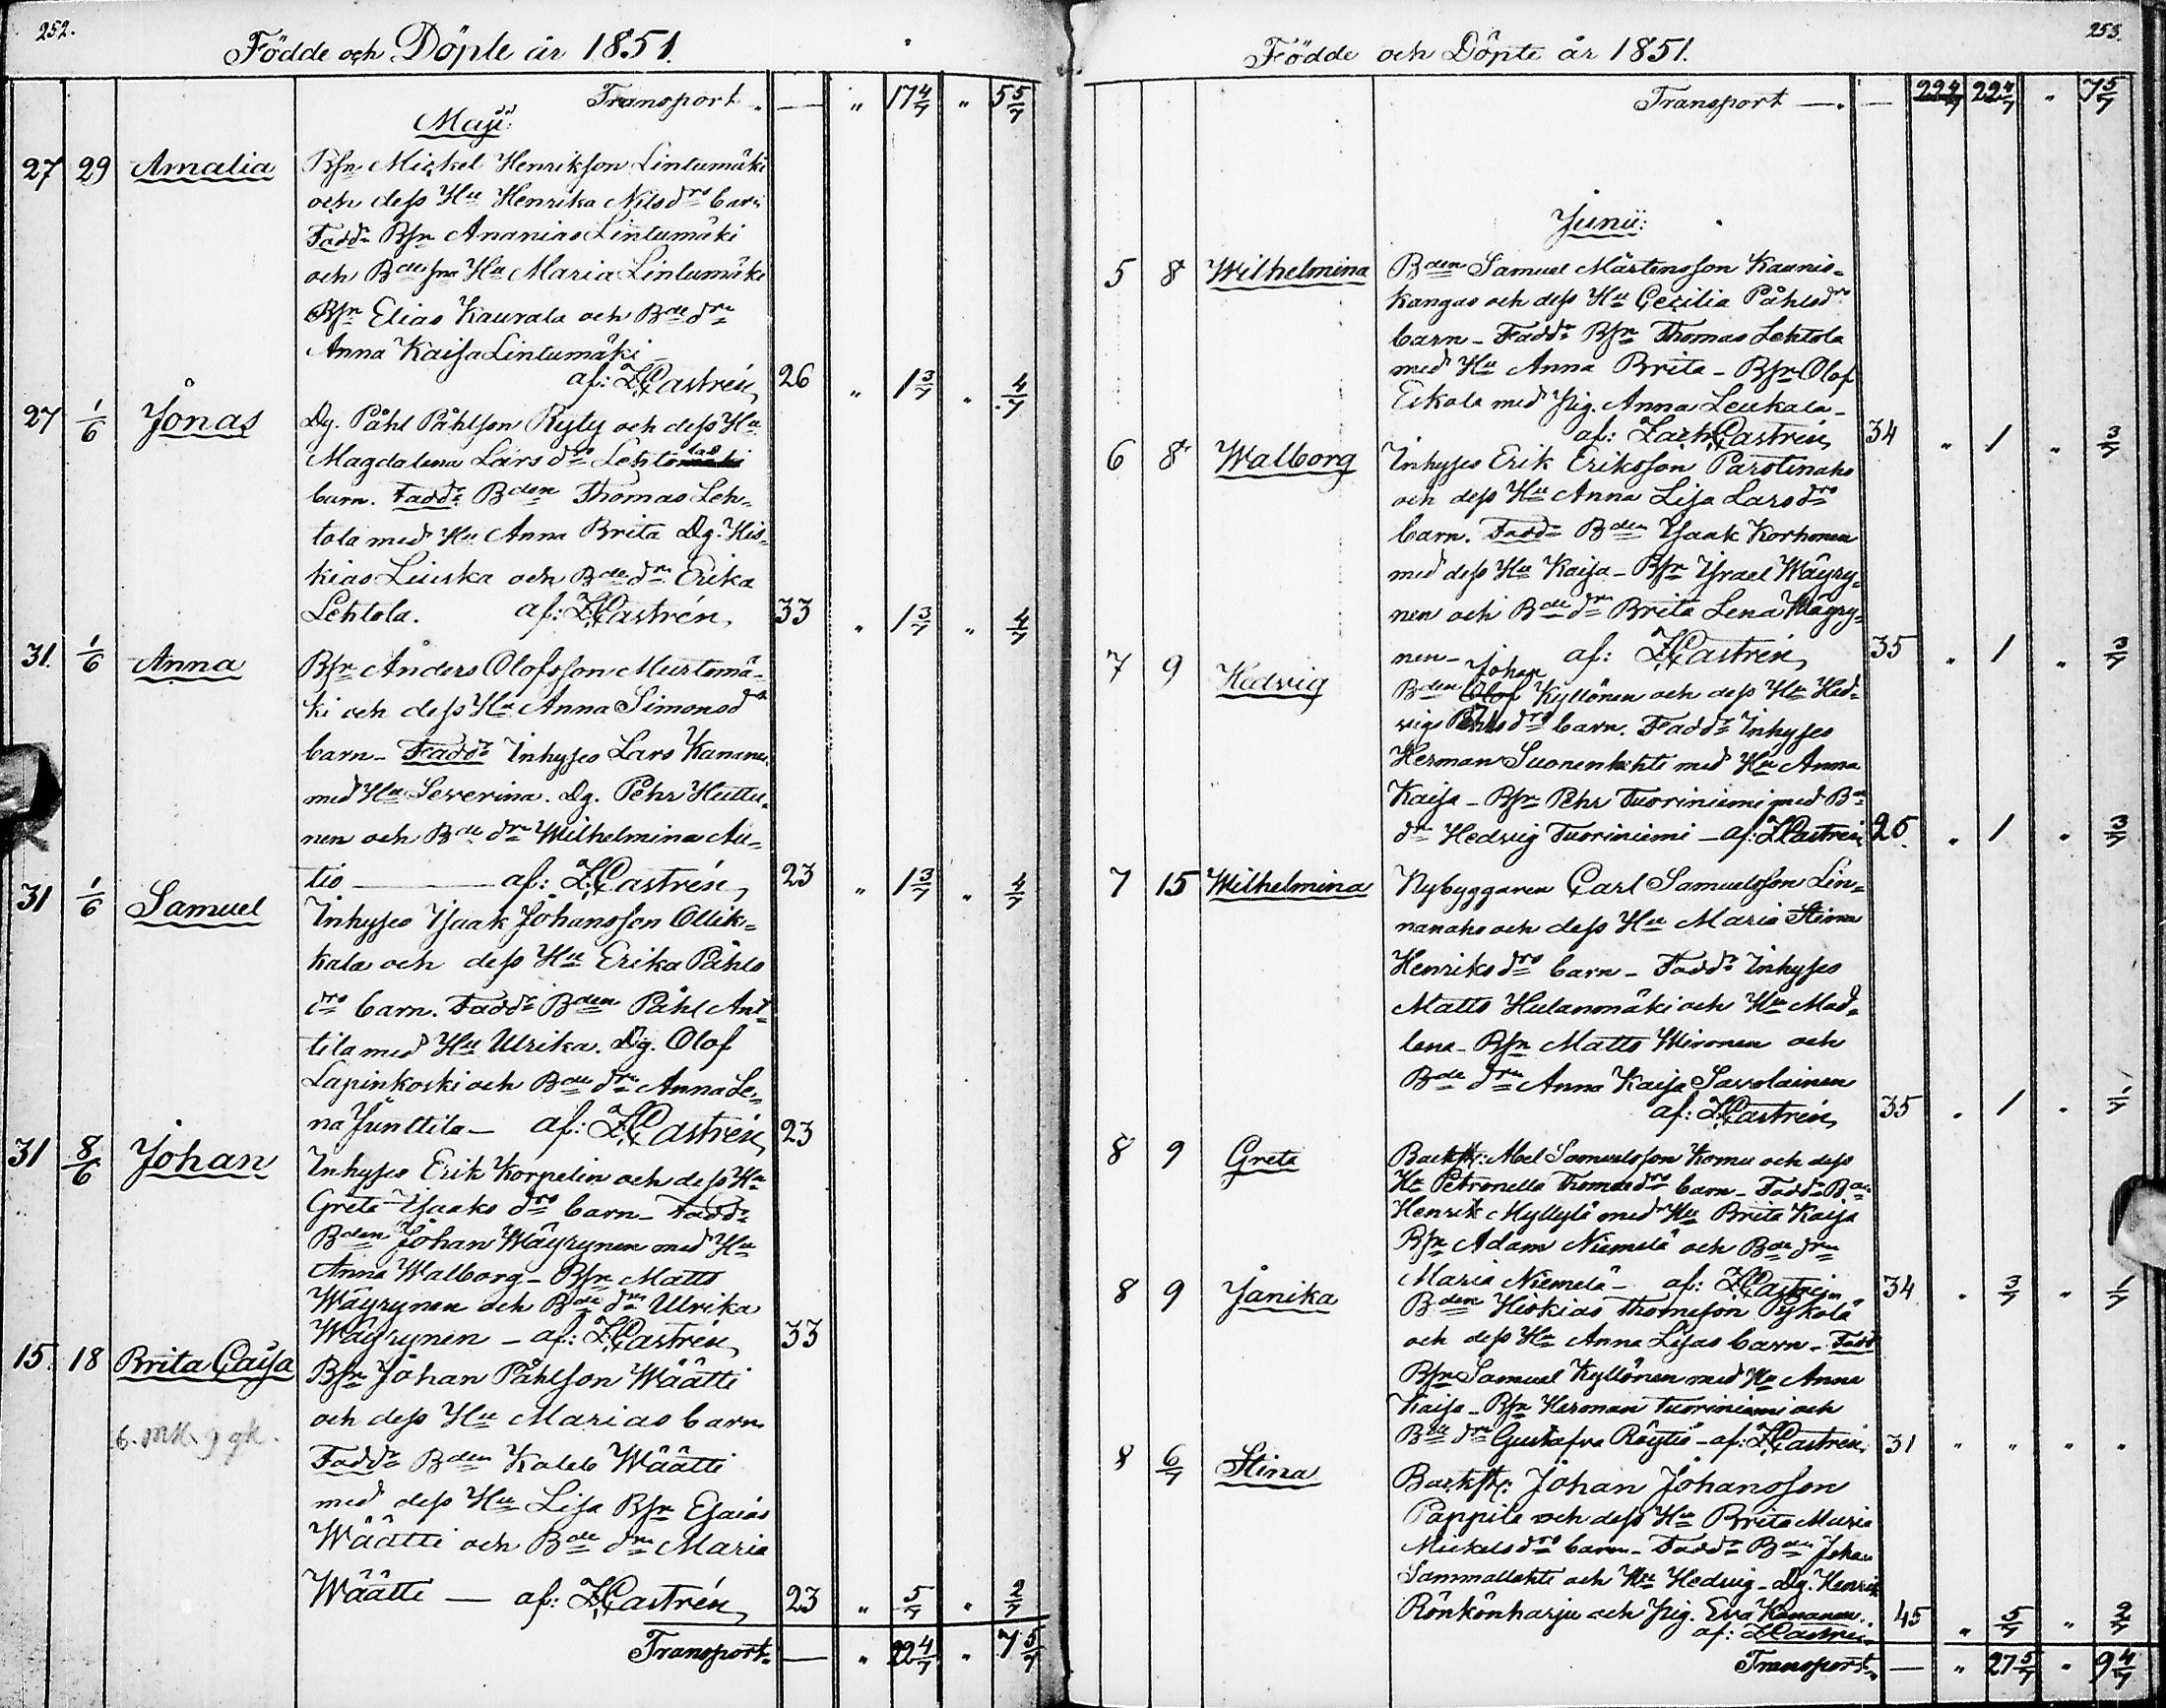 252.
Födde och Döpte år 1851.
Transport. — " 17 4/7 " 5 5/7
Maji:
27 29 Amalia Bfr Mickel Henriksson Lintumäki
och dess Hu Henrika Nilsdrs barn
Fadd: Bfr Ananias Lintumäki
och Bdesna Hu Maria Lintumäki
Bfr Elias Kaurala och Bde dr
Anna Kaisa Lintumäki
af: Z Castrén, 26 " 1 3/7 " 4/7
27 1/6 Jonas Dg. Påhl Påhlsson Ryty och dess Hu
Magdalena Larsdr Lehtolas
barn. Fadd: Bden Thomas Leh-
tola med Hu Anna Brita Dg. His-
kias Leiska och Bde dr Erika
Lehtola. af: Z Castrén, 33 " 1 3/7 " 4/7
31. 1/6 Anna Bfr Anders Olofsson Murtomä-
ki och dess Hu Anna Simonsdr
barn – Fadd: Inhyses Lars Kananen
med Hu Severina. Dg. Pehr Huttu-
nen och Bde dr Wilhelmina Au-
tio — af: Z Castrén, 23 " 1 3/7 " 4/7
31 1/6 Samuel Inhyses Isaak Johansson Ollik-
kala och dess Hu Erika Påhls
drs barn. Fadd: Bden Påhl Ant-
tila med Hu Ulrika. Dg. Olof
Lapinkoski och Bde dr Anna Le-
na Junttila – af: Z Castrén, 23
31 8/6 Johan Inhyses Erik Korpelin och dess Hu
Greta Isaks drs barn – Fadd:
Bden Johan Wäyrynen med Hu
Anna Walborg – Bfr Matts
Wäyrynen och Bde dr Ulrika
Wäyrynen – af: Z Castrén, 33
15. 18 Brita Caisa Bfr Johan Påhlsson Wäätti
och dess Hu Marias barn
Fadd: Bden Kaleb Wäätti
med dess Hu Lisa Bfr Esaias
Wäätti och Bde dr Maria
Wäätti — af: Z Castrén, 23 " 5/7 " 2/7
Transport. — " 22 4/7 " 7 5/7
253.
Födde och Döpte år 1851.
Transport —. — 22 4/7 22 4/7 " 7 5/7
Junii:
5 8 Wilhelmina Bden Samuel Mårtensson Kaunis-
kangas och dess Hu Cecilia Påhlsdrs
barn – Fadd: Bfr Thomas Lehtola
med Hu Anna Brita – Bfr Olof
Eskola med Pig. Anna Leukala –
af: Zach Castrén, 34 " 1 " 3/7
6 8 Walborg Inhyses Erik Eriksson Parstinaho
och dess Hu Anna Lisa Larsdrs
barn. Fadd: Bden Isaak Korhonen
med dess Hu Kaisa – Bfr Israel Wäyry-
nen och Bde dr Brita Lena Wäyry-
nen – af: Z Castrén, 35 " 1 " 3/7
7 9 Hedvig Bden Olof Johan Kyllönen och dess Hu Hed-
vigs drs barn. Fadd: Inhyses
Herman Suonenlahti med Hu Anna
Kaisa – Bfr Pehr Tuoriniemi med Bde
dr Hedvig Tuoriniemi – af: Z Castrén, 25. " 1 " 3/7
7 15 Wilhelmina Nybyggaren Carl Samuelsson Lin-
nanaho och dess Hu Maria Stina
Henriksdrs barn – Fadd: Inhyses
Matts Hulanmäki och Hu Mad-
lena – Bfr Matts Mironen och
Bde dr Anna Kaisa Savolainen
af: Z Castrén, 35 " 1 " 1/7
8 9 Greta Backst: Abel Samuelsson Komu och dess
Hu Petronella Thomasdrs barn – Fadd: Bden
Henrik Myllylä med Hu Brita Kaisa
Bfr Adam Niemelä och Bde dr
Maria Niemelä – af: Z Castrén 34 " 3/7 " 1/7
8 9 Janika Bden Hiskias Thomsson Pyskolä
och dess Hu Anna Lisas barn – Fadd
Bfr Samuel Kyllönen med Hu Anna
Kaisa – Bfr Herman Tuoriniemi och
Bde dr Gustafva Räytiö – af: Z Castrén, 31 " " " "
8 6/7 Stina Backst: Johan Johansson
Pappila och dess Hu Brita Maria
Mickelsdrs barn – Fadd: Bden Johan
Sammallahti och Hu Hedvig – Dg. Henrik
Rönkönharju och Pig. Eva Kananen.
af: Z Castrén 45 " 5/7 " 2/7
Transport. — " 27 5/7 " 9 4/7